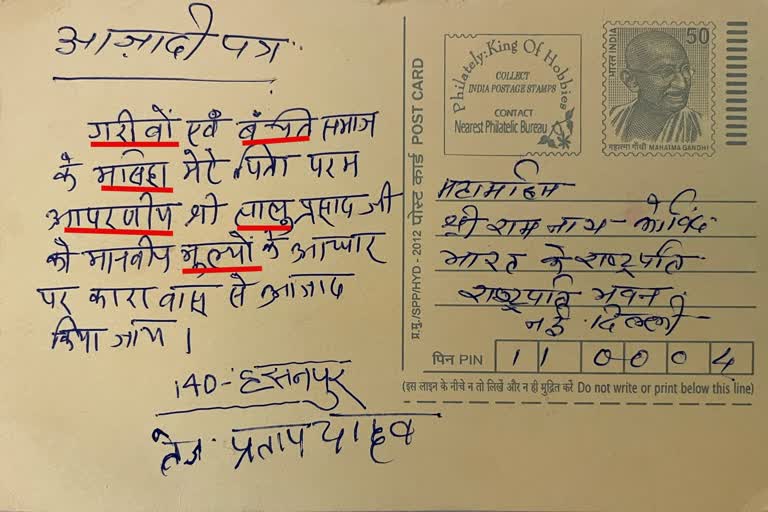 आज़ादी पत्र
गरीवों एवं बंचित समाज
के मसिहा मेरे पिता परम
आपरणीप श्री लालु प्रसाद जी
को मानवीप मुल्यों के आधार
पर कारा वास से आजाद
किया जाय ।
140-हसनपुर
तेज प्रताप यादव
प्र.मु./SPP/HYD - 2012 पोस्ट कार्ड POST CARD
Philately: King Of Hobbies
COLLECT
INDIA POSTAGE STAMPS
CONTACT
Nearest Philatelic Bureau
भारत INDIA
50
महात्मा गाँधी MAHATMA GANDHI
महामहिम
श्री राम नाथ कोविंद
भारत के राष्ट्रपति
राष्ट्रपति भवन
नई दिल्ली
पिन PIN 110004
(इस लाइन के नीचे न तो लिखें और न ही मुद्रित करें Do not write or print below this line)